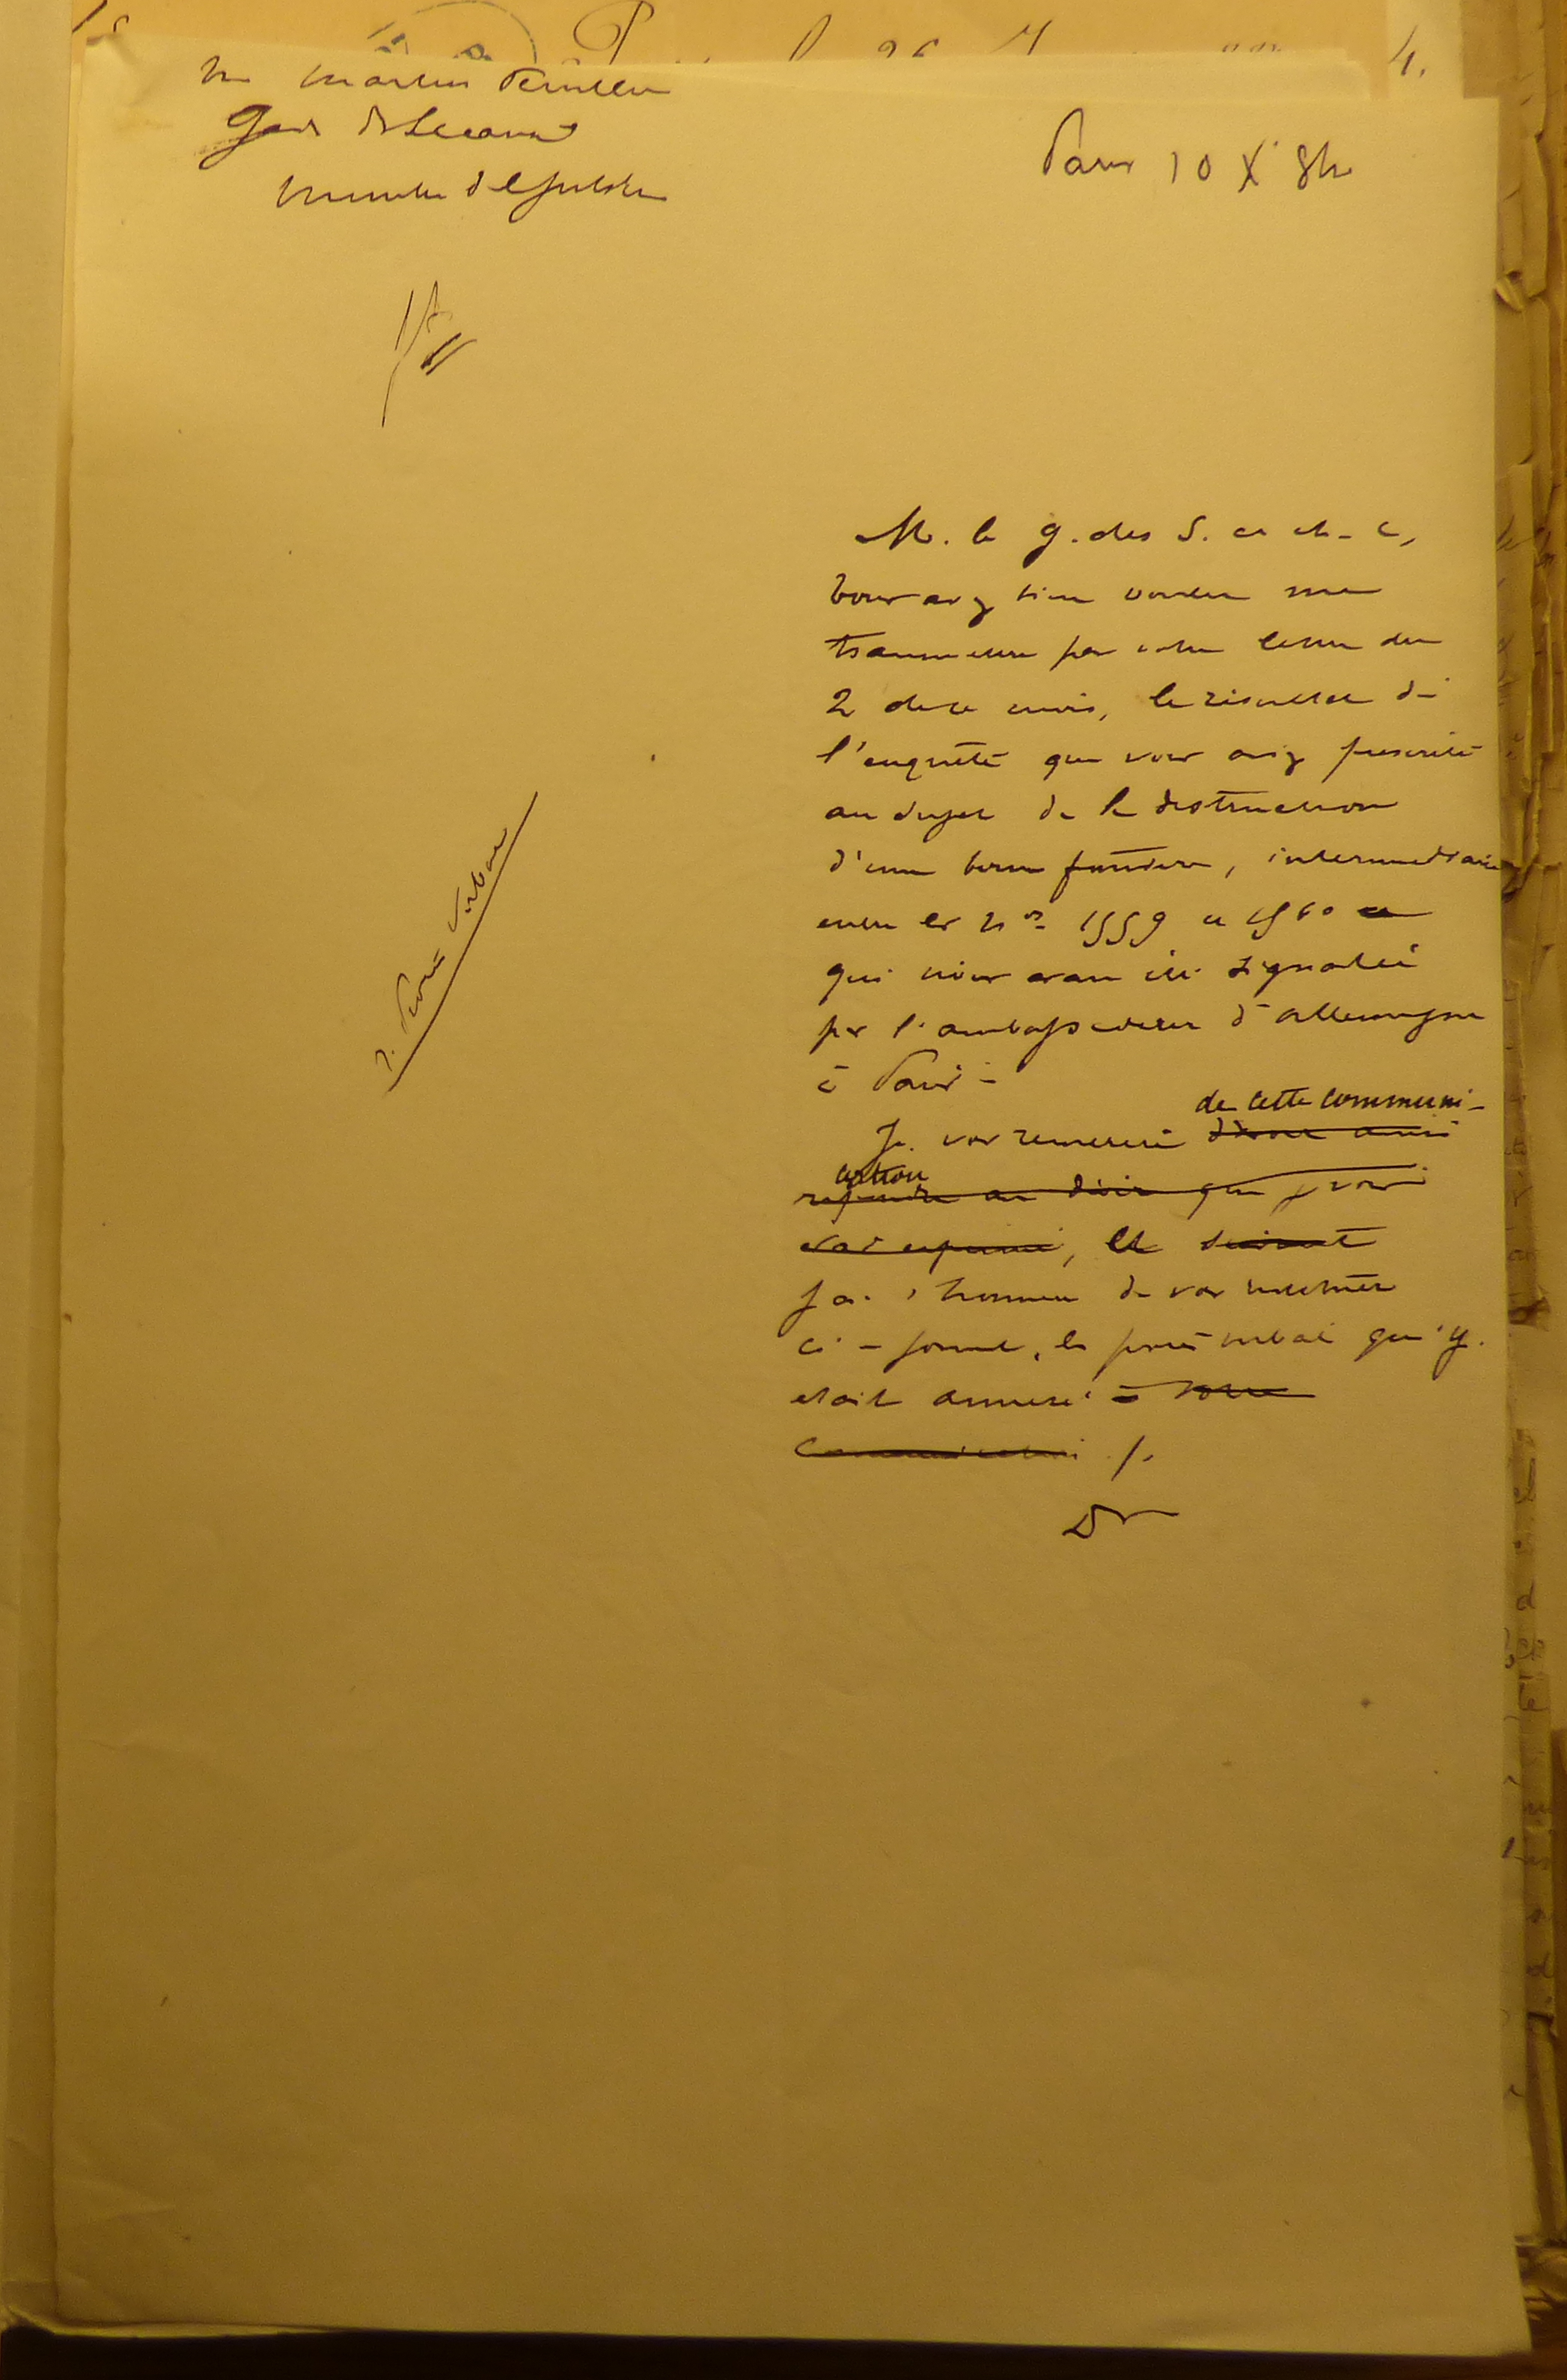 M. Martin Feuillée
Garde des Sceaux
Ministre de la Justice
Paris 10 Xbre 84
1. Procès Verbal
M. le g. des S. et ch. c,
Vous avez bien voulu me
transmettre par votre lettre du
2 de ce mois, le résultat de
l'enquête que vous avez prescrite
au sujet de la destruction
d'une borne frontière, intermédiaire
entre les nos 1559 et 1560 et
qui nous avait été signalée
par l'ambassadeur d'Allemagne
à Paris.
de cette communi-
Je vous remercie d'avoir ainsi
cation
répondu au désir que je vous
avais exprimé, et
j'ai l'honneur de vous restituer
ci-joint, le procès verbal qui y
était annexé à votre
communication ./.